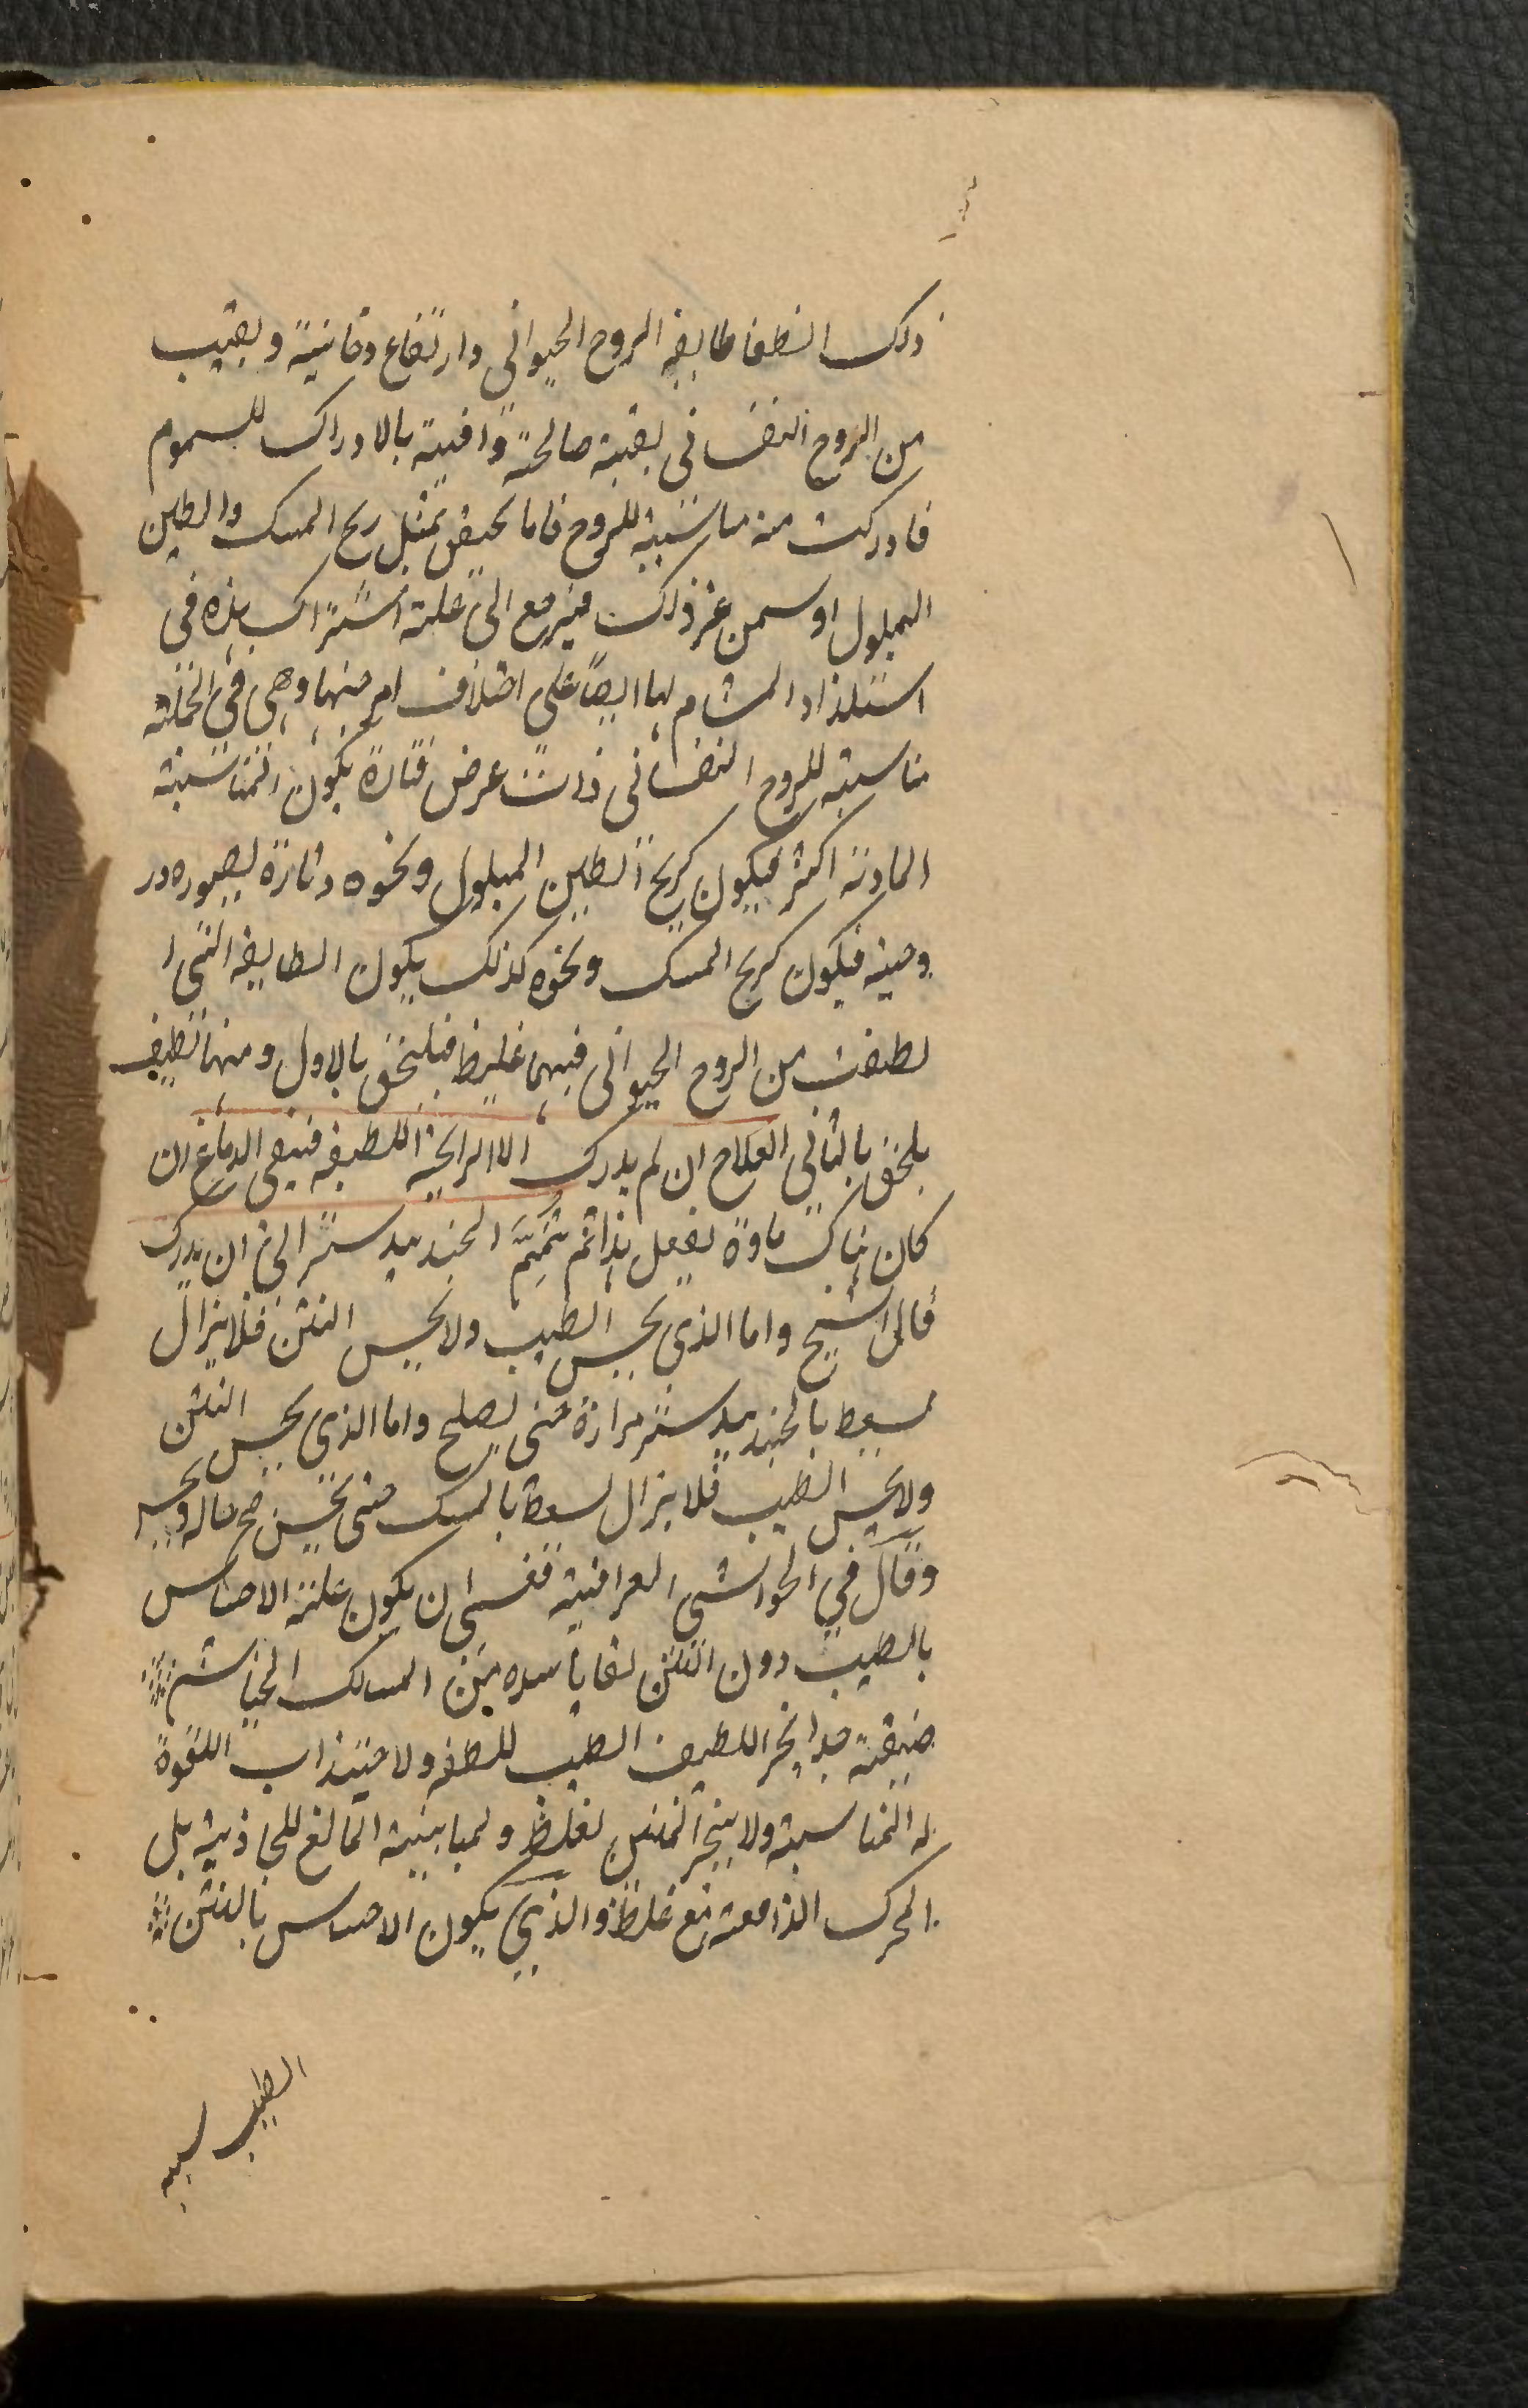 ذلك انطفا طايفة الروح الحيوانى وارتفاع دخانية وبقيت
من الروح النفسانى بقية صالحة وافية بالادراك للسموم
فادركت منه مناسبته للروح فاما تحيض بمثل ريح المسك والطين
المبلول او سمن عز ذلك فيرجع الى علة اشتراك هذه فى
استلذاذ المشام لها ايضا على اختلاف امر منها وهى فى الجملة
مناسبة للروح النفسانى ذات عرض فتارة يكون المناسبة
المادية اكثر فيكون كريح الطين المبلول ونحوه وتارة لصوره در
وحينه فيكون كريح المسك ونحوه كذلك يكون الطايفة التى ا
لطفت من الروح الحيوانى فيها غليظ فيلتحق بالاول ومنها لطيف
يلحق بالثانى العلاج ان لم يدرك الا الرايحة اللطيفة فينقى الدماغ ان
كان هناك مادة بفعل هذا ثم يشمم الجندبيدستر الى ان يدرك
قال الشيخ واما الذى يحس الطيب ولا يحس النتن فلا يزال
يسعط بالجندبيدستر مرارة حتى يصلح واما الذى يحس النتن
ولا يحس الطيب فلا يزال يسعط بالمسك حتى يحسن حاله
وقال فى الحواشى العراقية فعسى ان يكون علته الاحساس
بالطيب دون النتن لبقايا سده بين المسالك الخياشم
ضيقة جدا ينجر اللطيف الطيب للطفه ولاجتذاب القوة
له المناسبة ولا ينجر المنتن لغلظه ولمباينية المالغ للجاذبية بل
المحرك الدافعة مع غلظه والذى يكون الاحساس بالنتن
الطيب لسبه